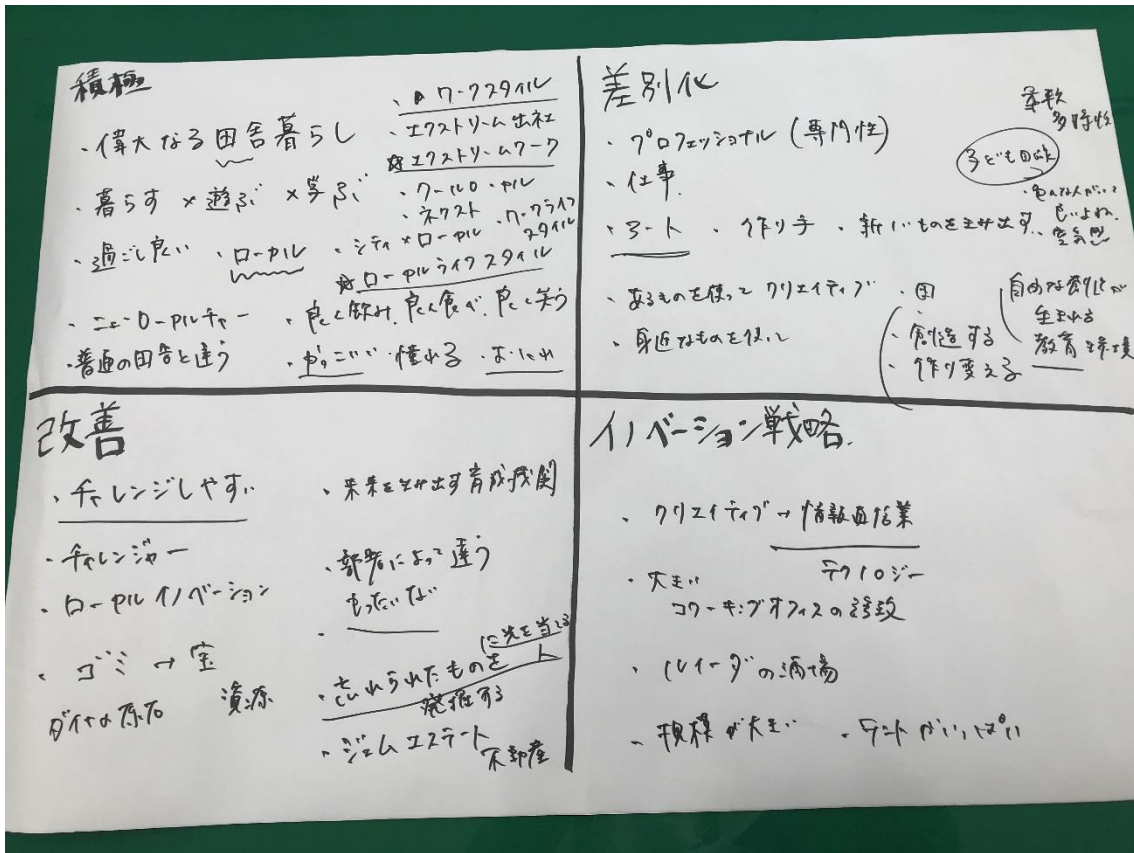 積極
・偉大なる田舎暮らし
・暮らす×遊ぶ×学ぶ
・過ごし良い ・ローカル
・ニューローカルチャー
・普通の田舎と違う
・ワークスタイル
・エクストリーム出社
☆エクストリームワーク
・クールローカル
・ネクスト
・ワークライフスタイル
・シティ×ローカル
☆ローカルライフスタイル
・良く飲み、良く食べ、良く笑う
・かっこいい・憧れる ・おしゃれ
差別化
・プロフェッショナル(専門性)
・仕事
・アート ・作り手 ・新しいものを生み出す
・あるものを使って クリエイティブ
・身近なものを使って
・創造する
・作り変える
多様性
子ども目線
・色んな人がいて
良いよね
空気感
自由な発想が
生まれる
教育環境
改善
・チャレンジしやすい
・チャレンジャー
・ローカルイノベーション
・ゴミ→宝
資源
ダイヤの原石
・未来を生み出す育成機関
・部署によって違う
もったいない
・忘れられたものを
に光を当てる
発掘する
・ジェムエステート
不動産
イノベーション戦略
・クリエイティブ→情報通信業
テクノロジー
・大きい
コワーキングオフィスの誘致
・ルイーダの酒場
・規模が大きい ・テントがいっぱい